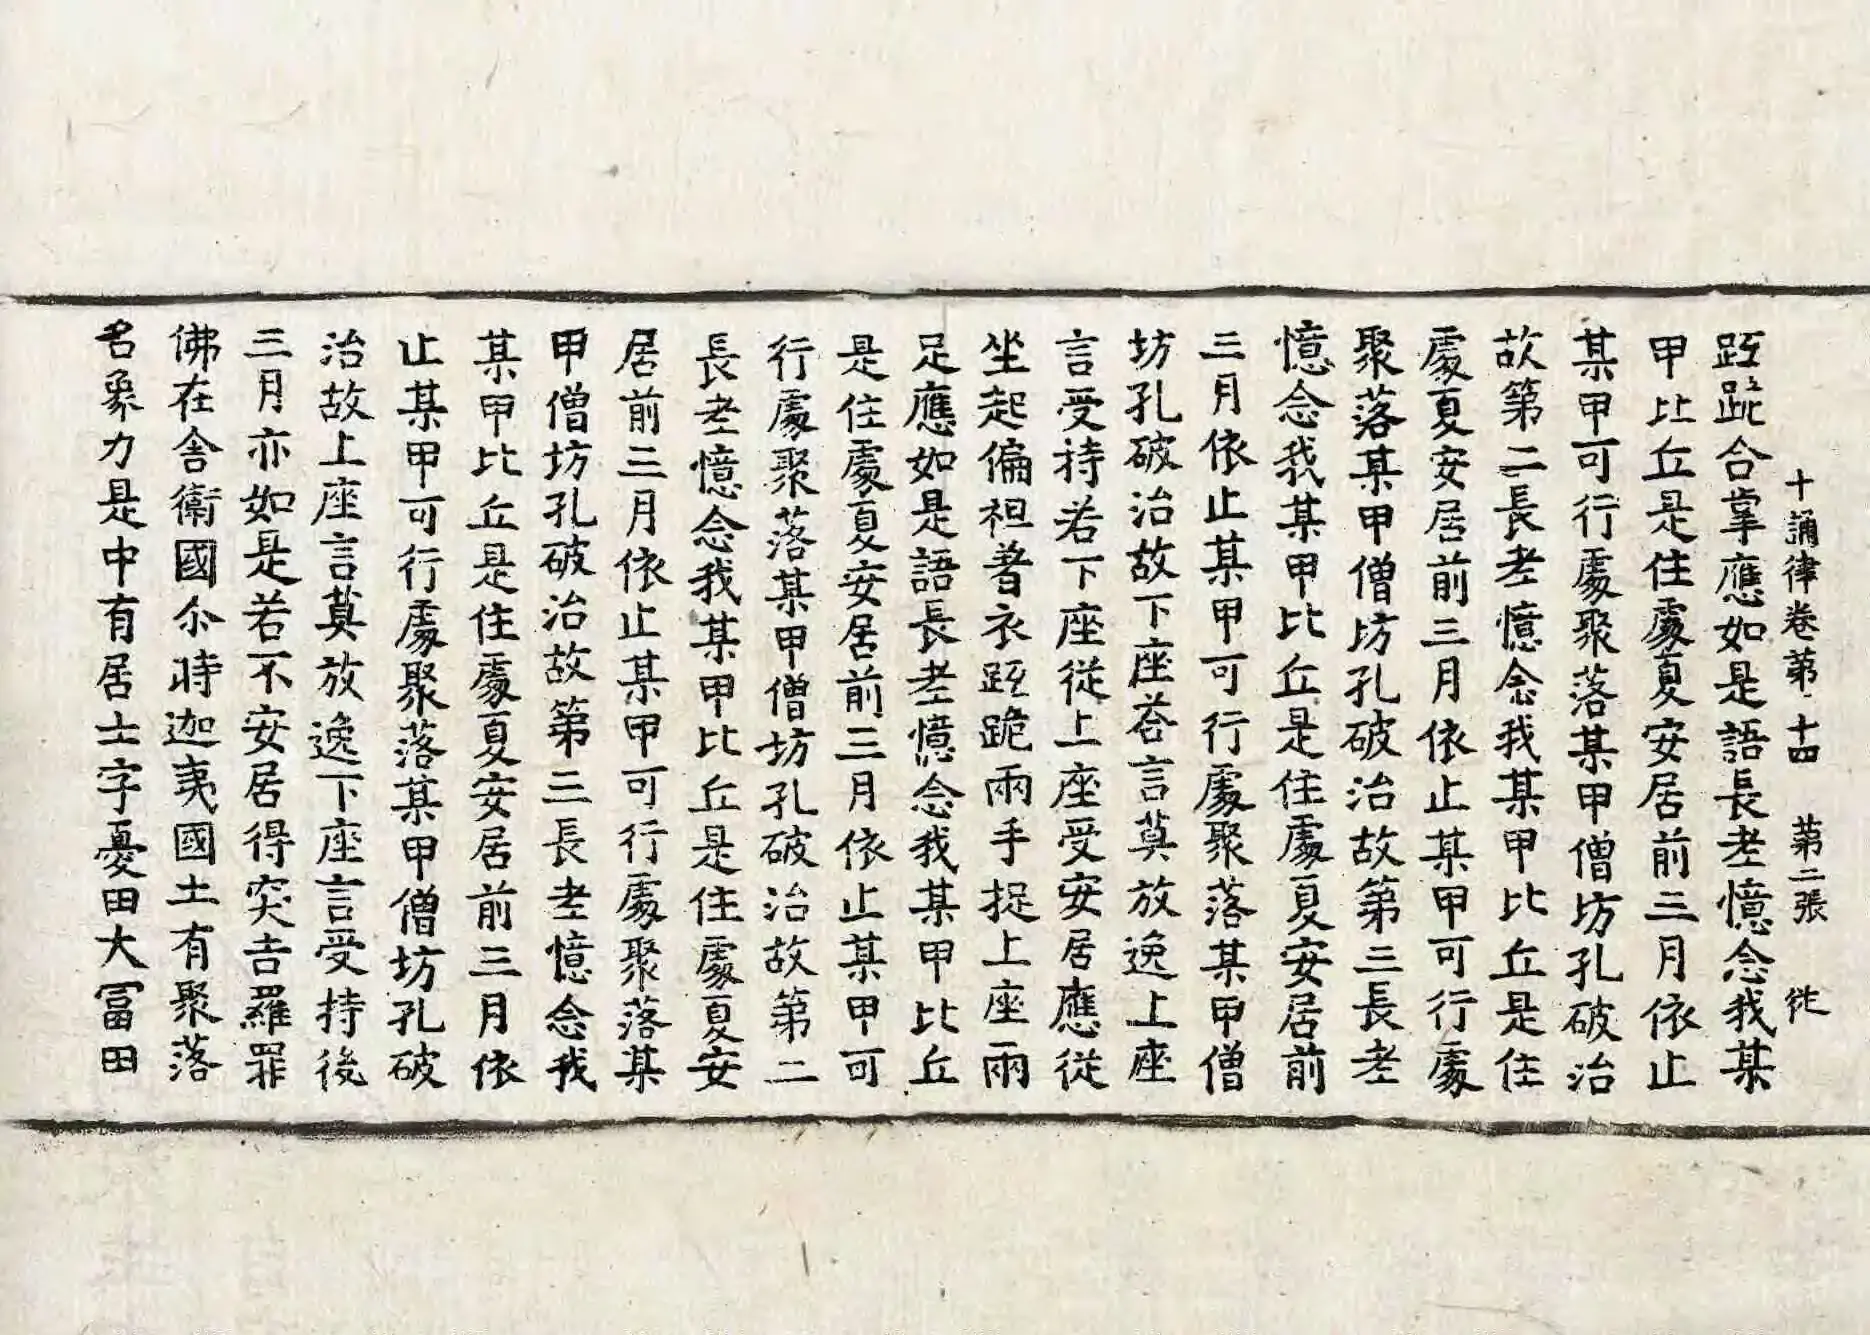 十誦律卷第十四 第二張 從
跽跪合掌應如是語長老憶念我某
甲比丘是住處夏安居前三月依止
某甲可行處聚落某甲僧坊孔破治
故第二長老憶念我某甲比丘是住
處夏安居前三月依止某甲可行處
聚落某甲僧坊孔破治故第三長老
憶念我某甲比丘是住處夏安居前
三月依止某甲可行處聚落某甲僧
坊孔破治故下座荅言莫放逸上座
言受持若下座從上座受安居應從
坐起偏袒著衣跽跪兩手捉上座兩
足應如是語長老憶念我某甲比丘
是住處夏安居前三月依止某甲可
行處聚落某甲僧坊孔破治故第二
長老憶念我某甲比丘是住處夏安
居前三月依止某甲可行處聚落某
甲僧坊孔破治故第三長老憶念我
某甲比丘是住處夏安居前三月依
止某甲可行處聚落某甲僧坊孔破
治故上座言莫放逸下座言受持後
三月亦如是若不安居得突吉羅罪
佛在舍衛國尒時迦夷國土有聚落
名象力是中有居士字憂田大冨田